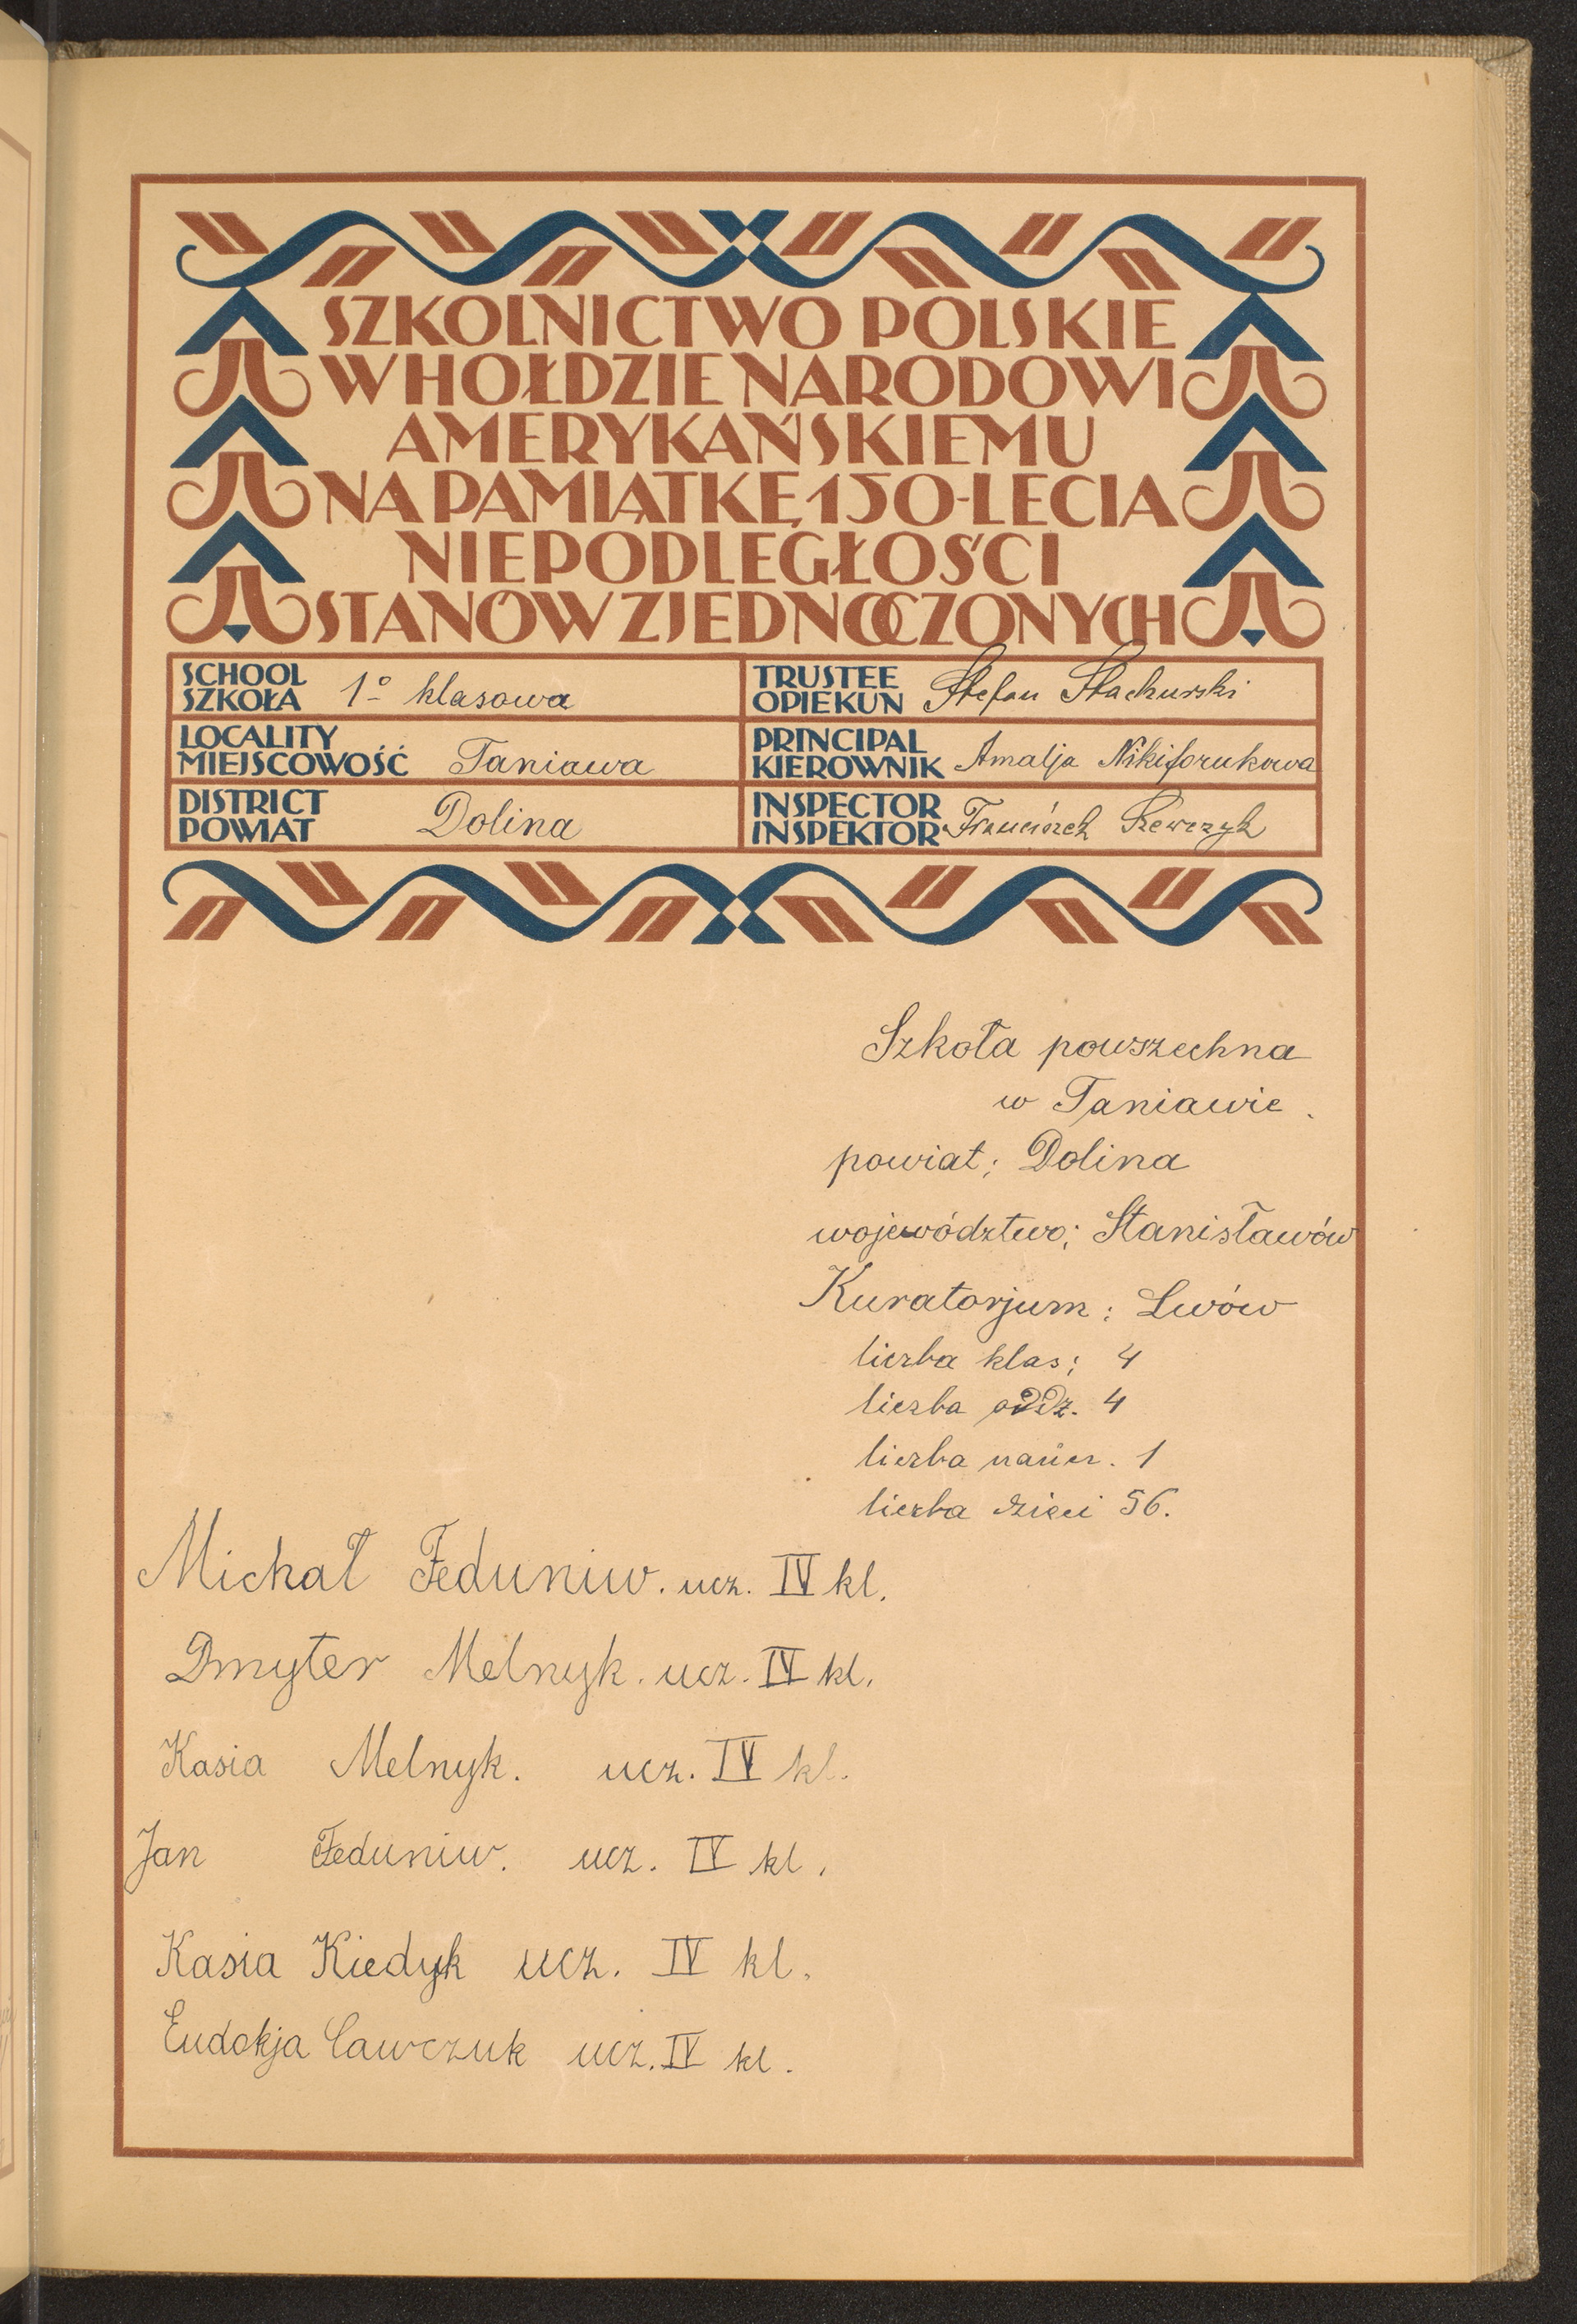 SZKOLNICTWO POLSKIE
W HOŁDZIE NARODOWI
AMERYKAŃSKIEMU
NA PAMIĄTKĘ 150-LECIA
NIEPODLEGŁOŚCI
STANÓW ZJEDNOCZONYCH
SCHOOL
SZKOŁA 1º klasowa
TRUSTEE
OPIEKUN Stefan Stachurski
LOCALITY
MIEJSCOWOŚĆ Taniawa
PRINCIPAL
KIEROWNIK Amalja Nikiforukowa
DISTRICT
POWIAT Dolina
INSPECTOR
INSPEKTOR Franciszek Szewczyk
Szkoła powszechna
w Taniawie.
powiat; Dolina
województwo; Stanisławów
Kuratorjum: Lwów
liczba klas; 4
liczba oddz. 4
liczba naucz. 1
liczba dzieci 56.
Michał Feduniw. ucz. IV kl.
Dmyter Melnyk. ucz. IV kl.
Kasia Melnyk. ucz. IV kl.
Jan Feduniw. ucz. IV kl.
Kasia Kiedyk ucz. IV kl.
Eudokja Cawczuk ucz. IV kl.